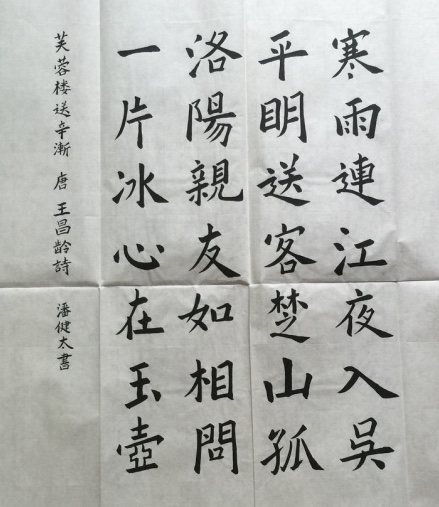 寒雨連江夜入吳
平明送客楚山孤
洛陽親友如相問
一片冰心在玉壺
芙蓉楼送辛漸 唐 王昌齡詩 潘健太書